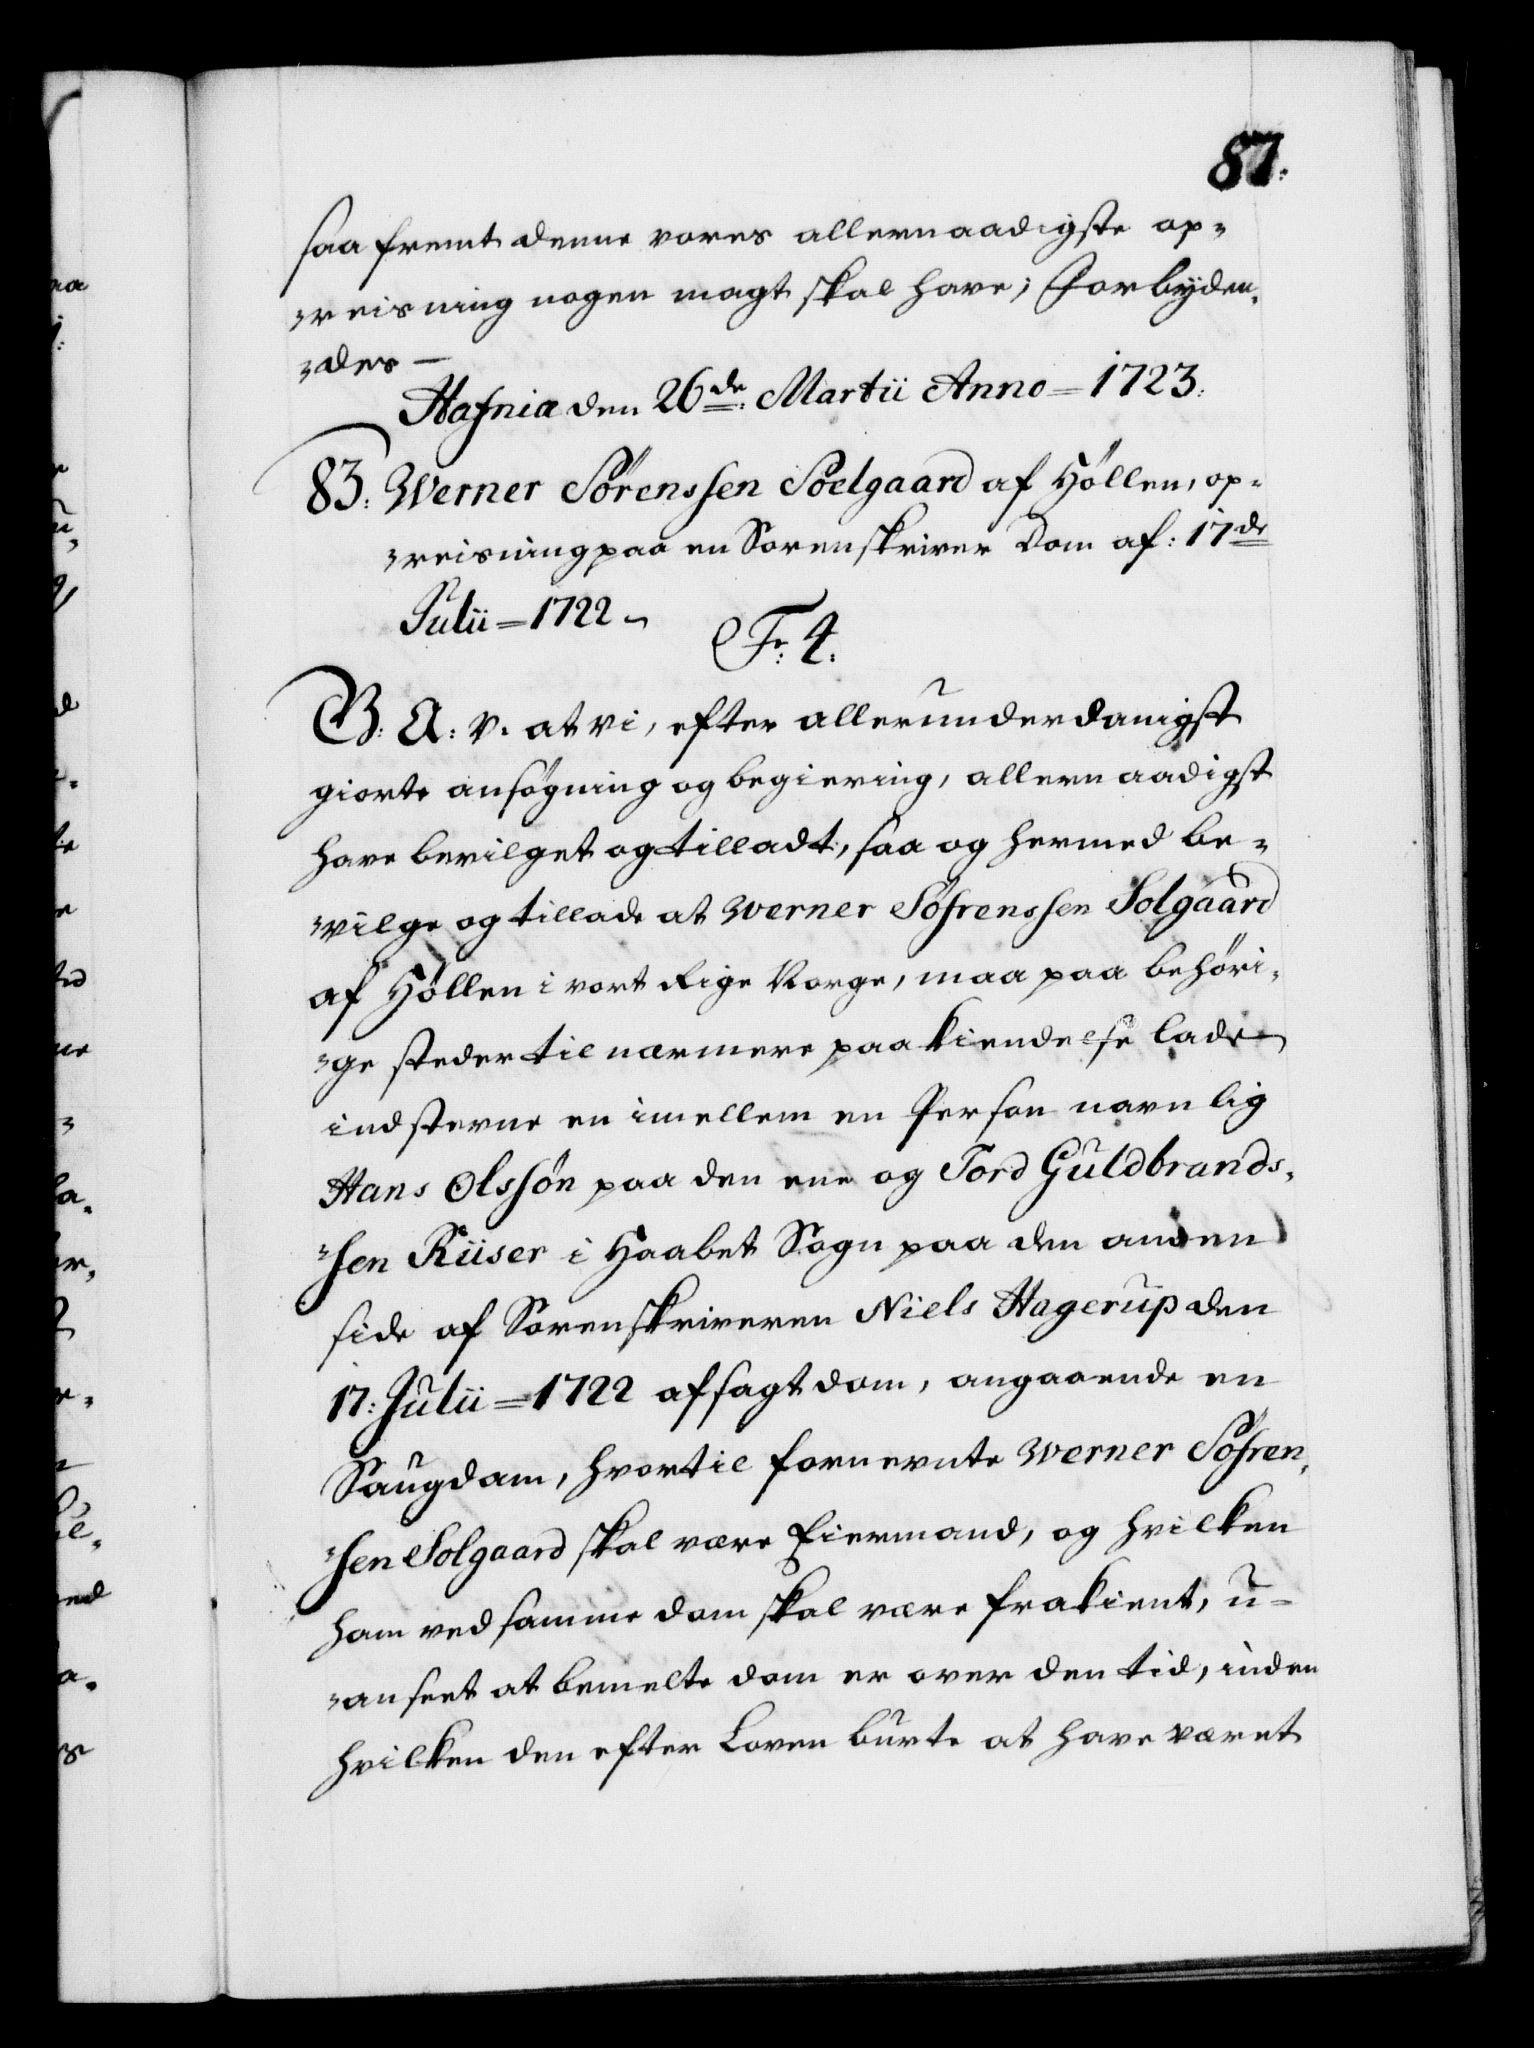 87.
saa fremt denne vores allernaadigste op-
-reisning nogen magt skal have; Forbyden-
-des —
Hafniæ den 26de Martii Anno = 1723.
83. Werner Sörenssen Soelgaard af Höllen, op-
-reisning paa en Sorenskriver Dom af: 17de
Julii = 1722 ~
Fr: 4.
G: A: V. at vi, efter allerunderdanigst
giorte ansögning og begiering, allernaadigst
have bevilget og tilladt, saa og hermed be-
-vilge og tillade at Werner Söfrenssen Solgaard
af Höllen i vort Rige Norge, maa paa behöri-
-ge steder til nærmere paakiendelse lade
indstevne en imellem en Person navnlig
Hans Olssön paa den ene og Tord Guldbrands-
-sen Riiser i Haabet Sogn paa den anden
side af Sorenskriveren Niels Hagerup den
17: Julii = 1722 afsagt dom, angaaende en
Saugdam, hvortil fornevnte Werner Söfren-
-sen Solgaard skal være Eiermand, og hvilken
ham ved samme dom skal være frakient, u-
-anseet at bemelte dom er over den tid, inden
hvilken den efter Loven burte at have været